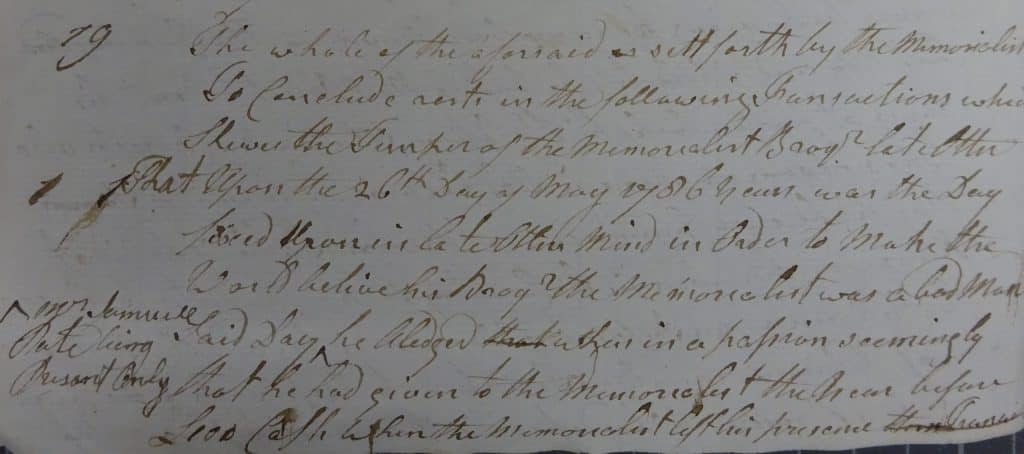 79 The whole of the aforsaid as sett forth by the Memorialist
To Conclude rests in the following Transactions whic
Shews the Temper of the Memorialist Broyr. late Otter
1 That Upon the 26th Day of May 1786 Years was the Day
fixed Upon in late Otters Mind in Order to Make the
World believe his Broyr. the Memorialist was a bad Man
Said Day he Aledged that when in a passion seemingly
^ Mr Samuel
Pate being
Present Only
that he had given to the Memorialist the Year before
£100 Cash when the Memorialist left his presence